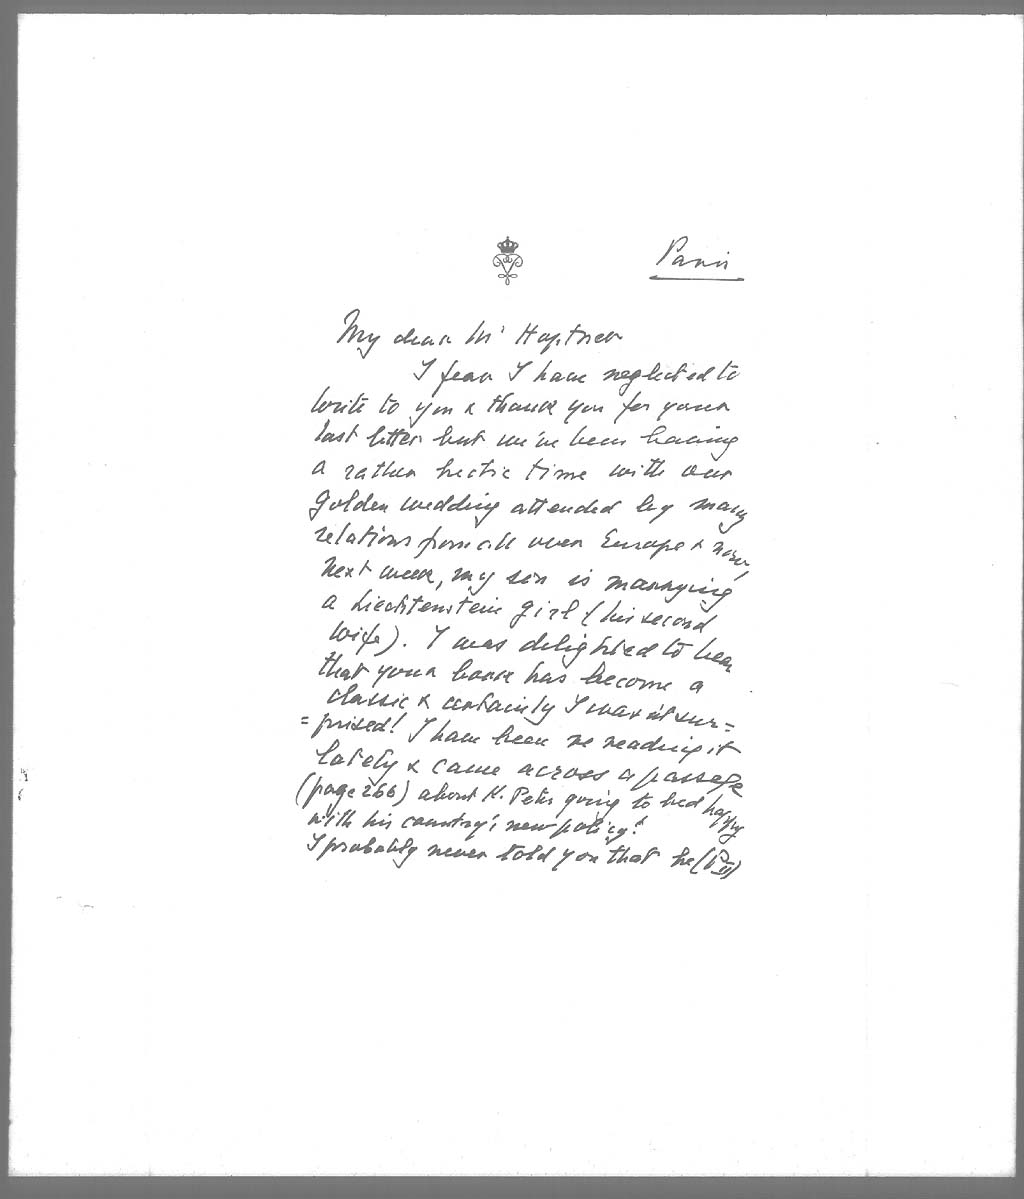 Paris
My dear Mr Hoptner
I fear I have neglected to
write to you & thank you for your
last letter but we've been having
a rather hectic time with our
golden wedding attended by many
relations from all over Europe & now,
next week, my son is marrying
a Liechtenstein girl (his second
wife). I was delighted to hear
that your book has become a
classic & certainly I wasn't sur=
=prised! I have been re reading it
lately & came across a passage
(page 266) about K. Peter going to bed happy
with his country's new policy!
I probably never told you that he (P II)